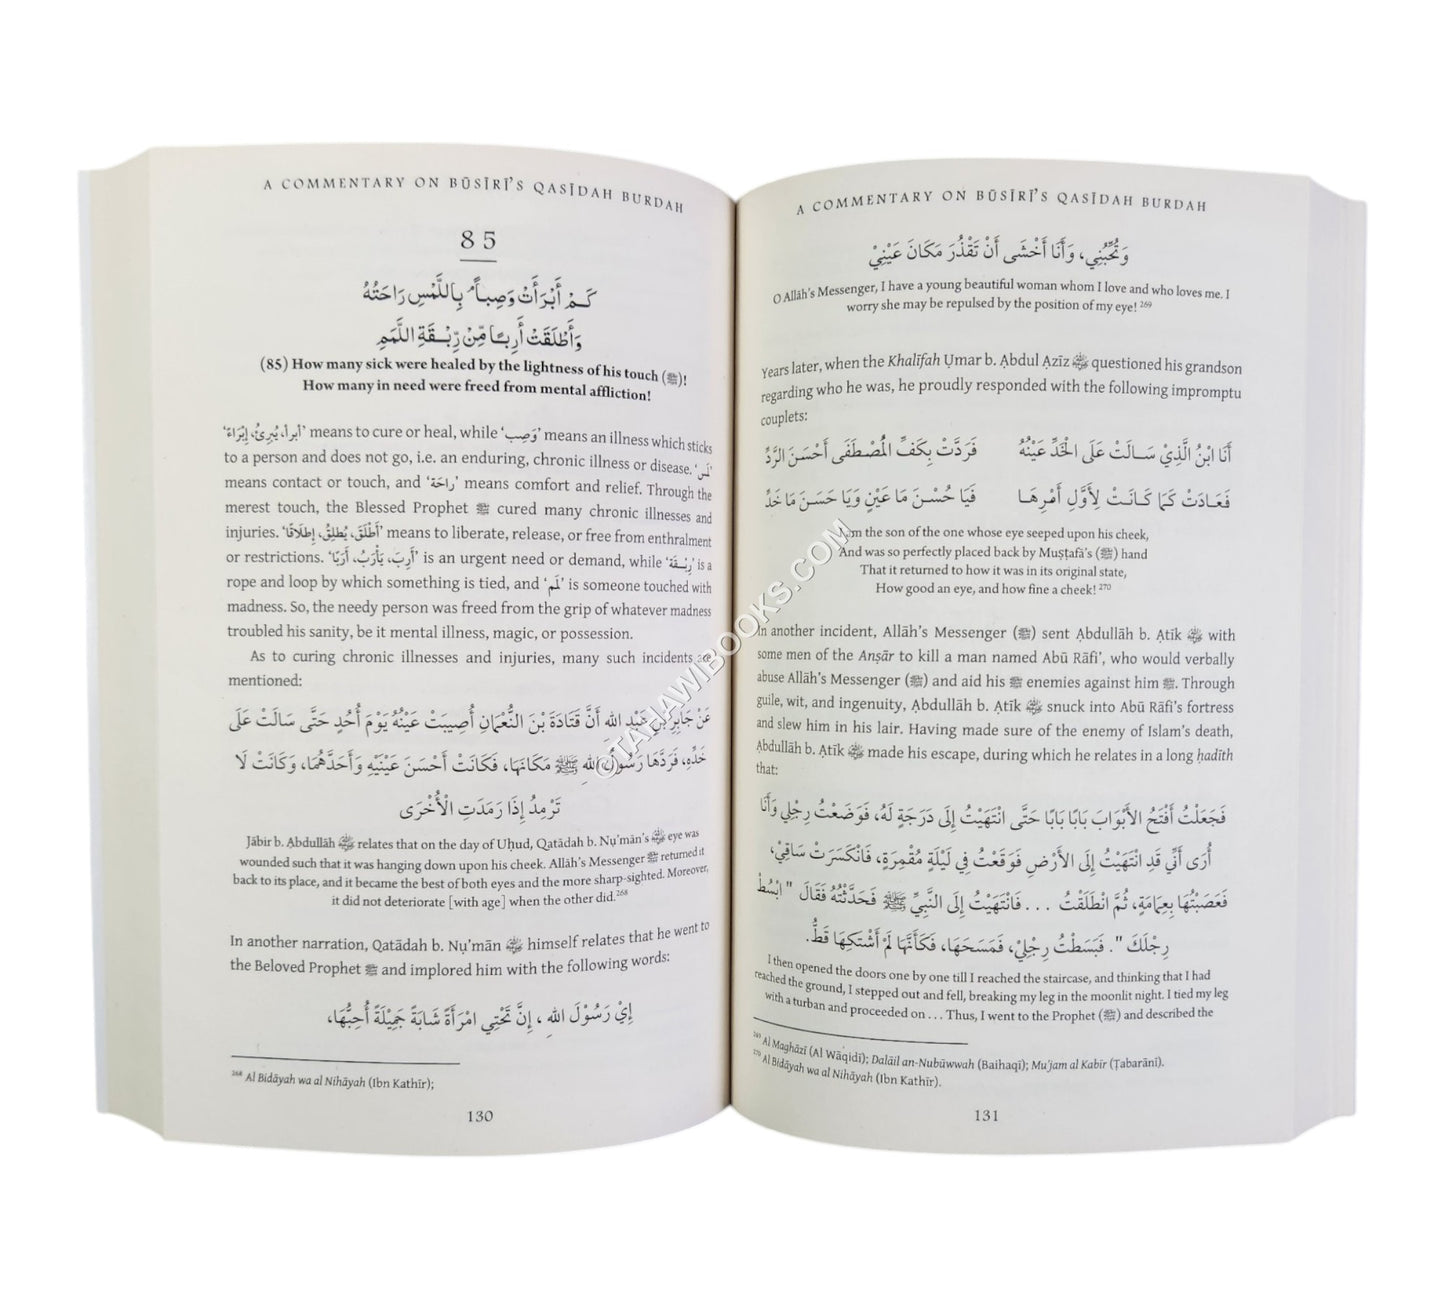 A COMMENTARY ON BŪSĪRĪ'S QASĪDAH BURDAH
85
كَمْ أَبْرَأَتْ وَصِباً بِاللَّمْسِ رَاحَتُهُ
وَأَطْلَقَتْ أَرِبًا مِّنْ رِّبْقَةِ اللَّمَمِ
(85) How many sick were healed by the lightness of his touch (ﷺ)!
How many in need were freed from mental affliction!
'أبرأ، يُبرِئُ، إِبْرَاءً' means to cure or heal, while 'وَصِب' means an illness which sticks
to a person and does not go, i.e. an enduring, chronic illness or disease. 'لمس'
means contact or touch, and 'راحَة' means comfort and relief. Through the
merest touch, the Blessed Prophet ﷺ cured many chronic illnesses and
injuries. 'أَطْلَقَ، يُطلِقُ، إِطلَاقًا' means to liberate, release, or free from enthralment
or restrictions. 'أَرِبَ، يَأْرَبُ، أَرَبًا' is an urgent need or demand, while 'رِبْقَة' is a
rope and loop by which something is tied, and 'لمَم' is someone touched with
madness. So, the needy person was freed from the grip of whatever madness
troubled his sanity, be it mental illness, magic, or possession.
As to curing chronic illnesses and injuries, many such incidents are
mentioned:
عَنْ جَابِرِ بْنِ عَبْدِ الله أَنَّ قَتَادَةَ بْنَ النُّعْمَانِ أُصِيبَتْ عَيْنُهُ يَوْمَ أُحُدٍ حَتَّى سَالَتْ عَلَى
خَدِّهِ، فَرَدَّهَا رَسُولُ اللهِ ﷺ مَكَانَهَا، فَكَانَتْ أَحْسَنَ عَيْنَيْهِ وَأَحَدَّهُمَا، وَكَانَتْ لَا
تَرْمِدُ إِذَا رَمَدَتِ الْأُخْرَى
Jābir b. Ạbdullāh relates that on the day of Uḥud, Qatādah b. Nụ'mān's eye was
wounded such that it was hanging down upon his cheek. Allāh's Messenger ﷺ returned it
back to its place, and it became the best of both eyes and the more sharp-sighted. Moreover,
it did not deteriorate [with age] when the other did.²⁶⁸
In another narration, Qatādah b. Nụ'mān himself relates that he went to
the Beloved Prophet ﷺ and implored him with the following words:
إِيْ رَسُوْلَ اللهِ ، إِنَّ تَحْتِي امْرَأَةً شَابَةً جَمِيْلَةً أُحِبُّهَا،
²⁶⁸ Al Bidāyah wa al Nihāyah (Ibn Kathīr);
130
A COMMENTARY ON BŪSĪRĪ'S QASĪDAH BURDAH
وَتُحِبُّنِي، وَأَنَا أَخْشَى أَنْ تَقْذُرَ مَكَانَ عَيْنِيْ
O Allāh's Messenger, I have a young beautiful woman whom I love and who loves me. I
worry she may be repulsed by the position of my eye! ²⁶⁹
Years later, when the Khalīfah Ụmar b. Ạbdul Ạzīz questioned his grandson
regarding who he was, he proudly responded with the following impromptu
couplets:
أَنَا ابْنُ الَّذِيْ سَالَتْ عَلَى الْخَدِّ عَيْنُهُ فَرَدَّتْ بِكَفِّ الْمُصْطَفَى أَحْسَنَ الرَّدِّ
فَعَادَتْ كَمَا كَانَتْ لِأَوَّلِ أَمْرِهَا فَيَا حُسْنَ مَا عَيْنٍ وَيَا حَسَنَ مَا خَدِّ
I am the son of the one whose eye seeped upon his cheek,
And was so perfectly placed back by Muṣṭafā's (ﷺ) hand
That it returned to how it was in its original state,
How good an eye, and how fine a cheek! ²⁷⁰
In another incident, Allāh's Messenger (ﷺ) sent Ạbdullāh b. Ạtīk with
some men of the Anṣār to kill a man named Abū Rāfi', who would verbally
abuse Allāh's Messenger (ﷺ) and aid his ﷺ enemies against him ﷺ. Through
guile, wit, and ingenuity, Ạbdullāh b. Ạtīk snuck into Abū Rāfi's fortress
and slew him in his lair. Having made sure of the enemy of Islam's death,
Ạbdullāh b. Ạtīk made his escape, during which he relates in a long ḥadīth
that:
فَجَعَلْتُ أَفْتَحُ الأَبْوَابَ بَابًا بَابًا حَتَّى انْتَهَيْتُ إِلَى دَرَجَةٍ لَهُ، فَوَضَعْتُ رِجْلِي وَأَنَا
أُرَى أَنِّي قَدِ انْتَهَيْتُ إِلَى الأَرْضِ فَوَقَعْتُ فِي لَيْلَةٍ مُقْمِرَةٍ، فَانْكَسَرَتْ سَاقِيْ،
فَعَصَبْتُهَا بِعِمَامَةٍ، ثُمَّ انْطَلَقْتُ ... فَانْتَهَيْتُ إِلَى النَّبِيِّ ﷺ فَحَدَّثْتُهُ فَقَالَ " ابْسُطْ
رِجْلَكَ ". فَبَسَطْتُ رِجْلِيْ، فَمَسَحَهَا، فَكَأَنَّهَا لَمْ أَشْتَكِهَا قَطُّ.
I then opened the doors one by one till I reached the staircase, and thinking that I had
reached the ground, I stepped out and fell, breaking my leg in the moonlit night. I tied my leg
with a turban and proceeded on ... Thus, I went to the Prophet (ﷺ) and described the
²⁶⁹ Al Maghāzī (Al Wāqidī); Dalāil an-Nubūwwah (Baihaqī); Mu'jam al Kabīr (Ṭabarānī).
²⁷⁰ Al Bidāyah wa al Nihāyah (Ibn Kathīr).
131
©TAHAWIBOOKS.COM